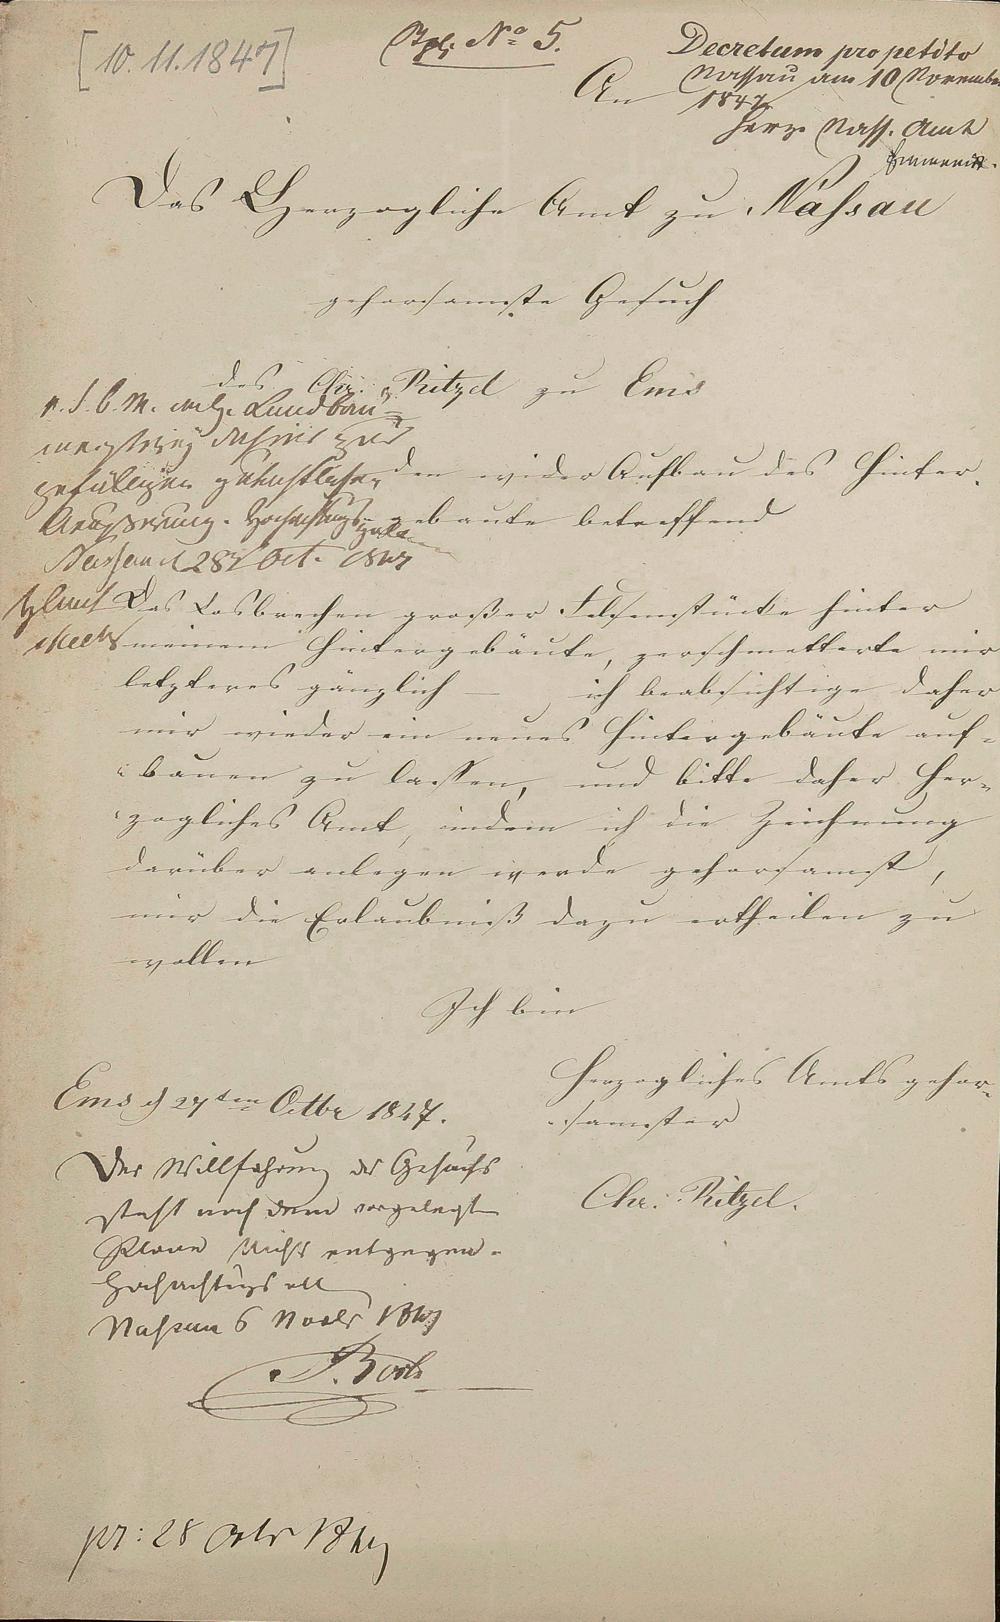 [10. 11. 1847]
Nº 5.
Decretum pro petito
Nassau am 10 November
1847
Herz. Nass. Amt
An
Das Herzogliche Amt zu Nassau
gehorsamste Gesuch
des Chr. Ritzel zu Ems
den wider Aufbau des Hinter-
gebaute betreffend
r. s. b. M. Landbau-
meisterey dahier zur
gefälligen gutachtlichen
Aeußerung. Hochachtungsvoll
Nassau d 28t Oct. 1847
Das Losbrechen großer Felsenstücke hinter
meinem Hintergebäute, zerschmetterte mir
letzteres gänzlich — ich beabsichtige daher
mir wieder ein neues Hintergebäute auf-
bauen zu lassen, und bitte daher Her-
zogliches Amt, indem ich die Zeichnung
darüber anlegen werde gehorsamst,
mir die Erlaubniß dazu ertheilen zu
wollen
Ich bin
Herzogliches Amts gehor-
samster
Chr. Ritzel.
Ems d 27ten Octbr 1847.
Der Willfahrung des Gesuchs
steht nach dem vorgelegten
Plane nichts entgegen.
Hochachtungsvoll
Nassau 6 Novbr 1847
pr: 28 Octbr 1847